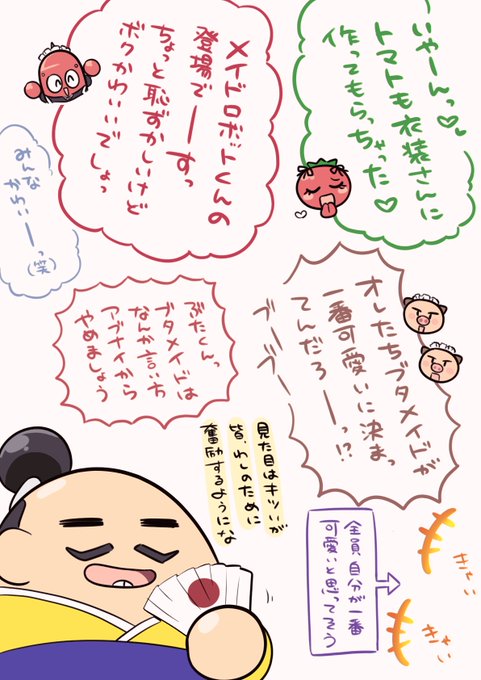 いやーんっ♡♡
トマトも衣装さんに
作ってもらっちゃった♡
メイドロボットくんの
登場でーーすっ
ちょっと恥ずかしいけど
ボクかわいいでしょっ
みんな
かわいーーっ(笑)
オレたちブタメイドが
一番可愛いに決まっ
てんだろーーっ!?
ブーブー
ぶたくんっ
ブタメイドは
なんか言い方
アブナイから
やめましょう
見た目はキツいが
皆、わしのために
奮励するようにな
全員自分が一番
可愛いと思ってそう
きゃい
きゃい